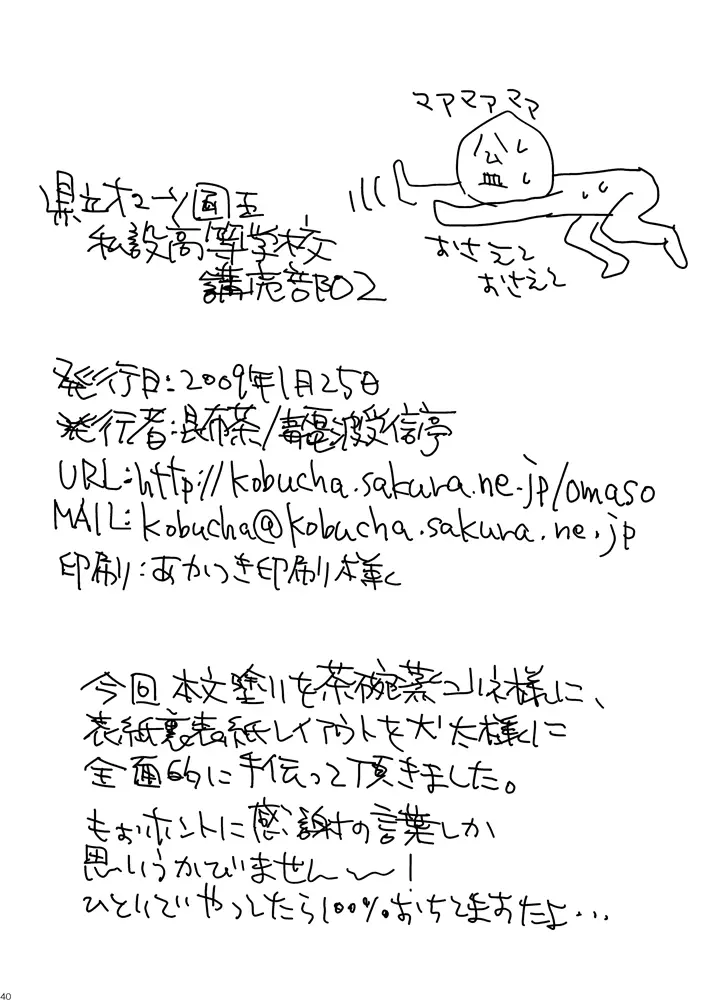 マアマアマア
公
皿
おさえて
おさえて
私設高等学校
購売部02
発行日:2009年1月25日
発行者:昆布茶/毒電波受信亭
URL:http://kobucha.sakura.ne.jp/omaso
MAIL:kobucha@kobucha.sakura.ne.jp
印刷:あかつき印刷様
今回本文塗りを茶碗蒸コルネ様に、
表紙裏表紙レイアウトを犬太様に
全面的に手伝って頂きました。
もぉホントに感謝の言葉しか
思いうかびません〜!
ひとりでやってたら100%おちてますたよ…
40